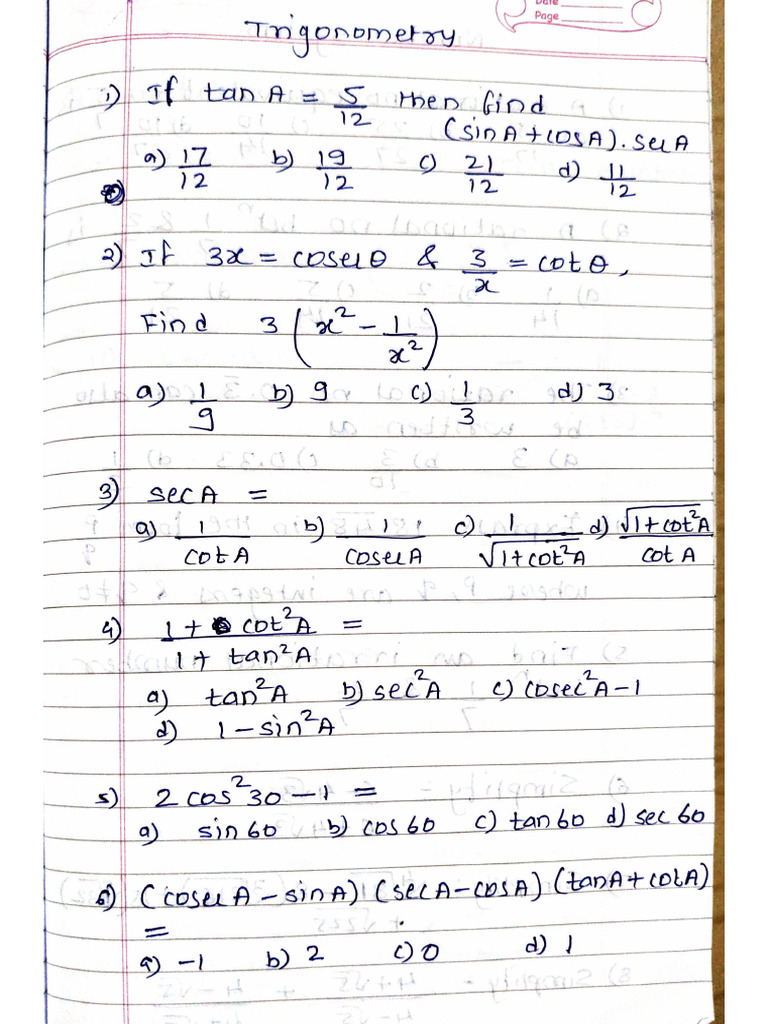 Date
Page
Trigonometry
1) If tan A = 5/12 then find
(sin A + cos A). sec A
a) 17/12 b) 19/12 c) 21/12 d) 11/12
2) If 3x = cosec θ & 3/x = cot θ,
Find 3 (x² - 1/x²)
a) 1/9 b) 9 c) 1/3 d) 3
3) sec A =
a) 1/cot A b) 1/cosec A c) 1/√(1+cot²A) d) √(1+cot²A)/cot A
4) (1 + cot²A)/(1 + tan²A) =
a) tan²A b) sec²A c) cosec²A - 1
d) 1 - sin²A
5) 2 cos²30 - 1 =
a) sin 60 b) cos 60 c) tan 60 d) sec 60
6) (cosec A - sin A) (sec A - cos A) (tan A + cot A)
=
a) -1 b) 2 c) 0 d) 1